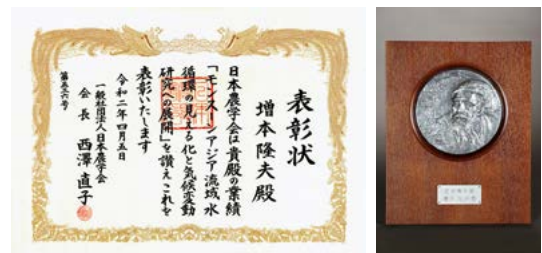 表彰状
増本隆夫殿
日本農学会は貴殿の業績
「モンスーンアジア流域水
循環の見える化と気候変動
研究への展開」を讃えこれを
表彰いたします
令和二年四月五日
一般社団法人日本農学会
会長 西澤直子